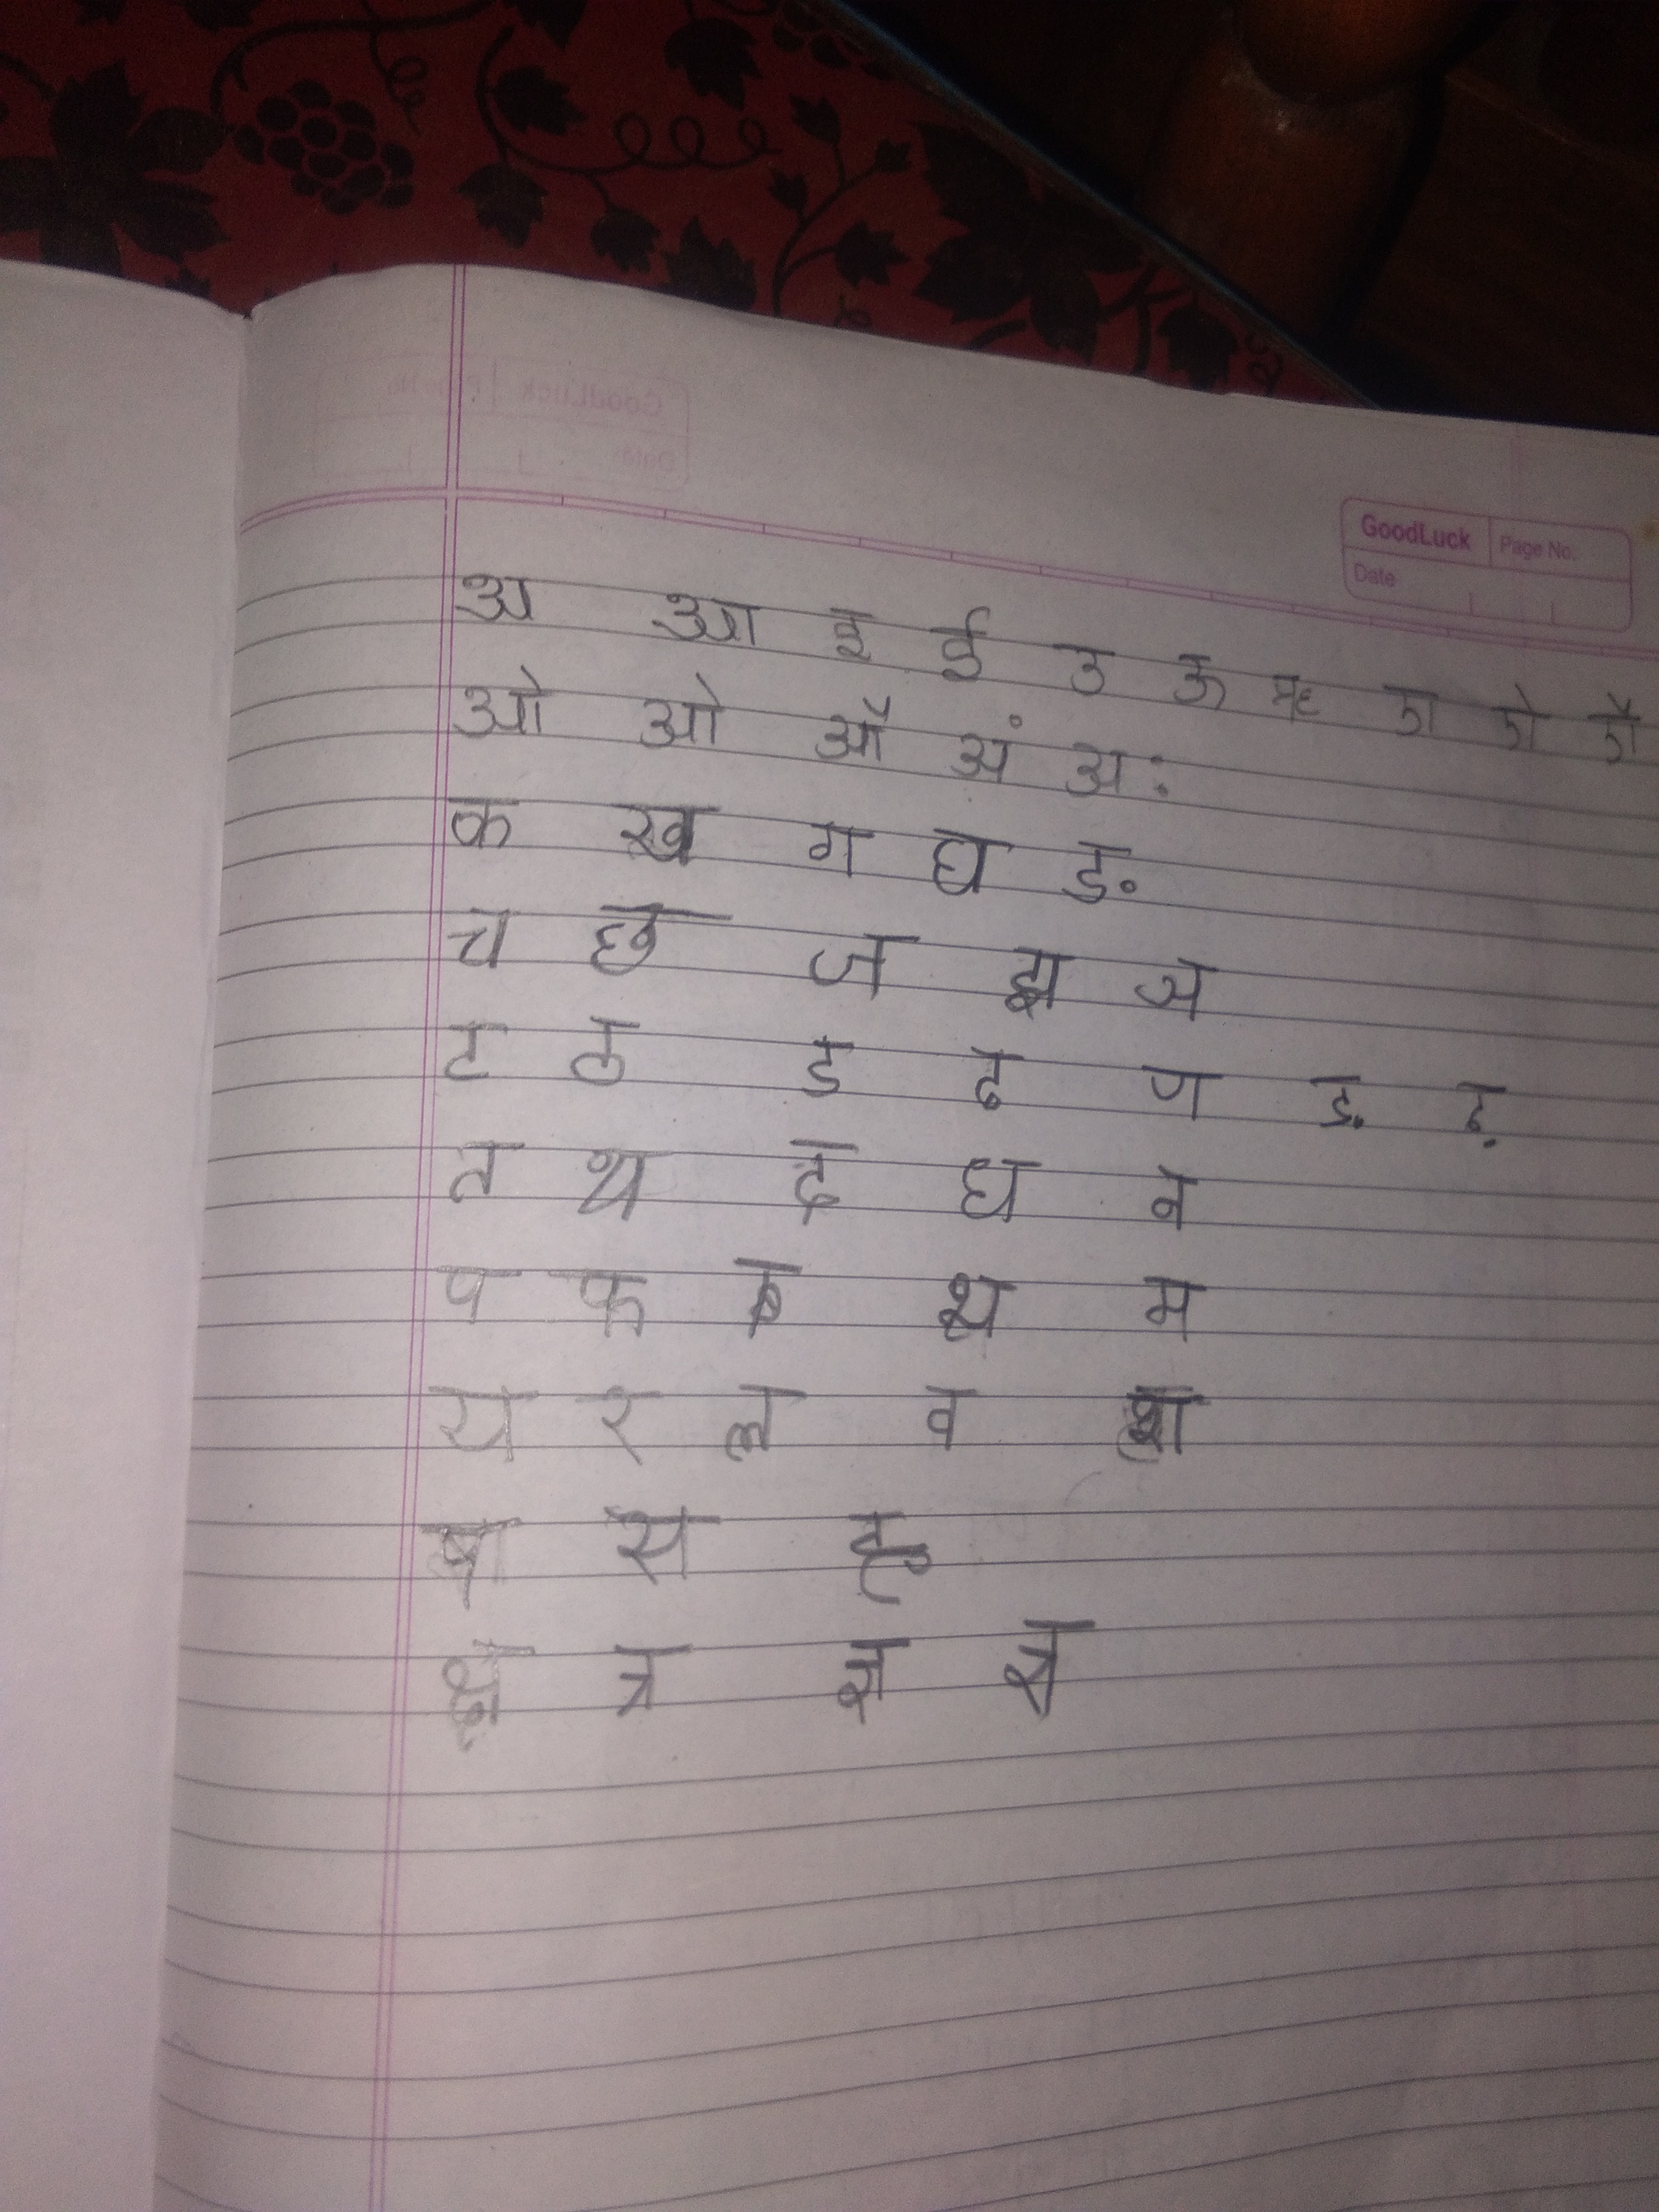 GoodLuck Page No.
Date
अ आ इ ई उ ऊ ऋ ए ऐ ऐ
ओ ओ औ अं अः
क ख ग घ ङ
च छ ज झ ञ
ट ठ ड ढ ण ड़ ढ़
त थ द ध न
प फ ब भ म
य र ल व श
ष स ह
क्ष त्र ज्ञ श्र